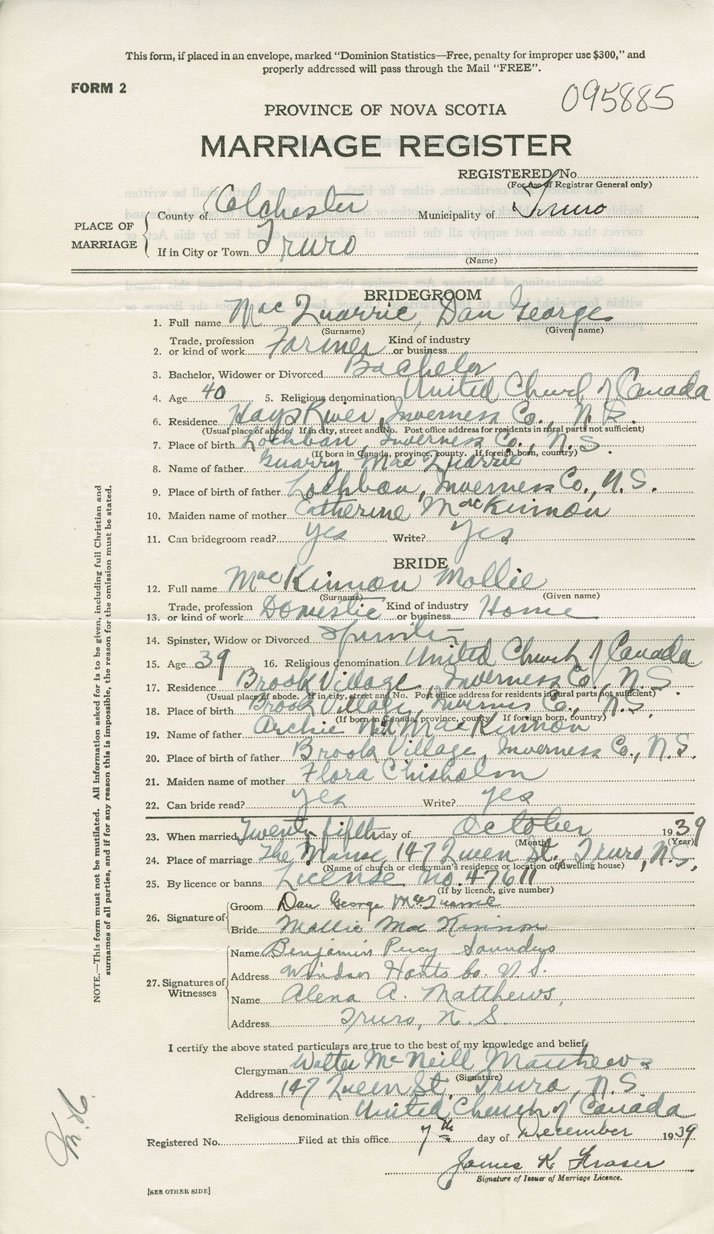 This form, if placed in an envelope, marked "Dominion Statistics—Free, penalty for improper use $300," and
properly addressed will pass through the Mail "FREE".
FORM 2
095885
PROVINCE OF NOVA SCOTIA
MARRIAGE REGISTER
REGISTERED No.
(For use of Registrar General only)
PLACE OF MARRIAGE
County of Colchester Municipality of Truro
If in City or Town Truro
(Name)
BRIDEGROOM
1. Full name MacQuarrie, Dan George
(Surname) (Given name)
2. Trade, profession or kind of work Farmer Kind of industry or business
3. Bachelor, Widower or Divorced Bachelor
4. Age 40 5. Religious denomination United Church of Canada
6. Residence Hays River, Inverness Co., N.S.
(Usual place of abode. If in city, street and No. Post office address for residents in rural parts not sufficient)
7. Place of birth Lochban, Inverness Co., N.S.
(If born in Canada, province, county. If foreign born, country)
8. Name of father Quarry MacQuarrie
9. Place of birth of father Lochban, Inverness Co., N.S.
10. Maiden name of mother Catherine MacKinnon
11. Can bridegroom read? Yes Write? Yes
BRIDE
12. Full name MacKinnon Mollie
(Surname) (Given name)
13. Trade, profession or kind of work Domestic Kind of industry or business Home
14. Spinster, Widow or Divorced Spinster
15. Age 39 16. Religious denomination United Church of Canada
17. Residence Brook Village, Inverness Co., N.S.
(Usual place of abode. If in city, street and No. Post office address for residents in rural parts not sufficient)
18. Place of birth Brook Village, Inverness Co., N.S.
(If born in Canada, province, county. If foreign born, country)
19. Name of father Archie MacKinnon
20. Place of birth of father Brook Village Inverness Co., N.S.
21. Maiden name of mother Flora Chisholm
22. Can bride read? Yes Write? Yes
23. When married Twenty fifth day of October 1939
(Month) (Year)
24. Place of marriage The Manse, 147 Queen St., Truro, N.S.
(Name of church or clergyman's residence or location of dwelling house)
25. By licence or banns License No. 47611
(If by licence, give number)
26. Signature of
Groom Dan George MacQuarrie
Bride Mollie MacKinnon
27. Signatures of Witnesses
Name Benjamin Percy Saunders
Address Windsor Hants Co. N.S.
Name Alena A. Matthews,
Address Truro, N.S.
I certify the above stated particulars are true to the best of my knowledge and belief,
Clergyman Walter McNeill Matthews
(Signature)
Address 147 Queen St. Truro, N.S.
Religious denomination United Church of Canada
Registered No. Filed at this office 7th day of December 1939
James K Fraser
Signature of Issuer of Marriage Licence.
[SEE OTHER SIDE]
NOTE.—This form must not be mutilated. All information asked for is to be given, including full Christian and
surnames of all parties, and if for any reason this is impossible, the reason for the omission must be stated.